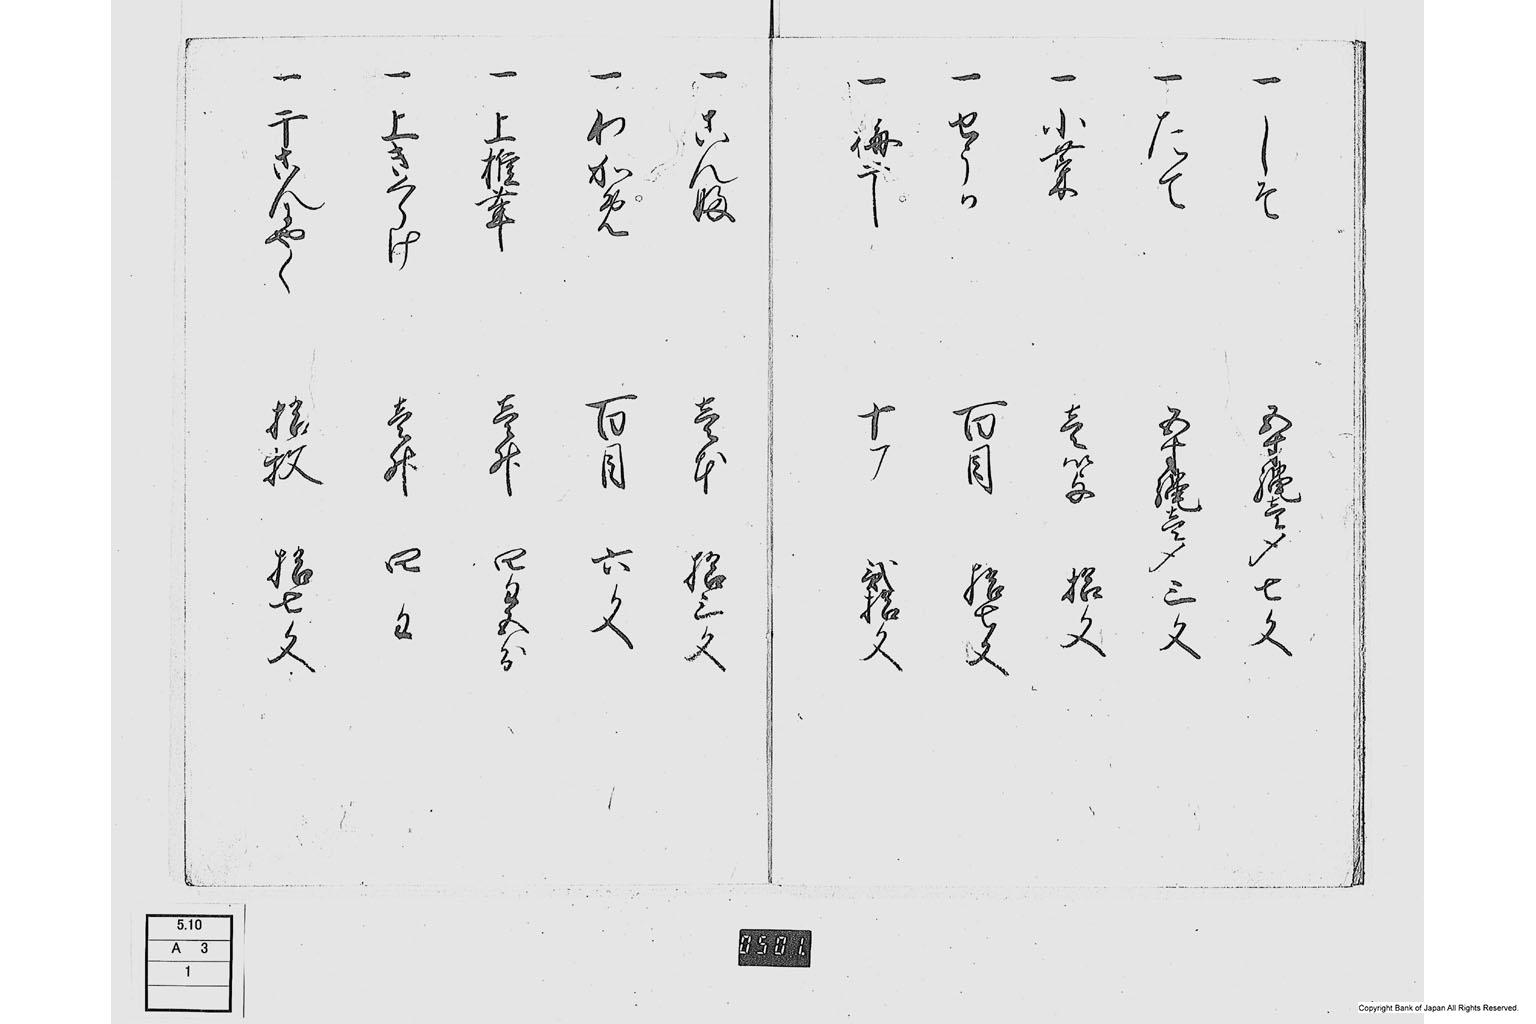 一 しそ 五十把壱〆 七文
一 たて 五十把壱〆 三文
一 小菜 壱 拾文
一 せうか 百目 拾七文
一 梅干 十 弐拾文
一 こん婦 壱本 拾三文
一 わかめ 百目 六文
一 上椎茸 壱升 四匁五分
一 上きくらけ 壱升 四匁
一 干こんにやく 拾枚 拾七文
5.10
A 3
1
0501
Copyright Bank of Japan All Rights Reserved.